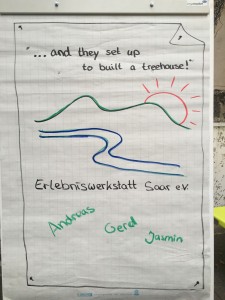 "...and they set up
to built a treehouse!"
Erlebniswerkstatt Saar e.V.
Andreas
Gerd
Jasmin